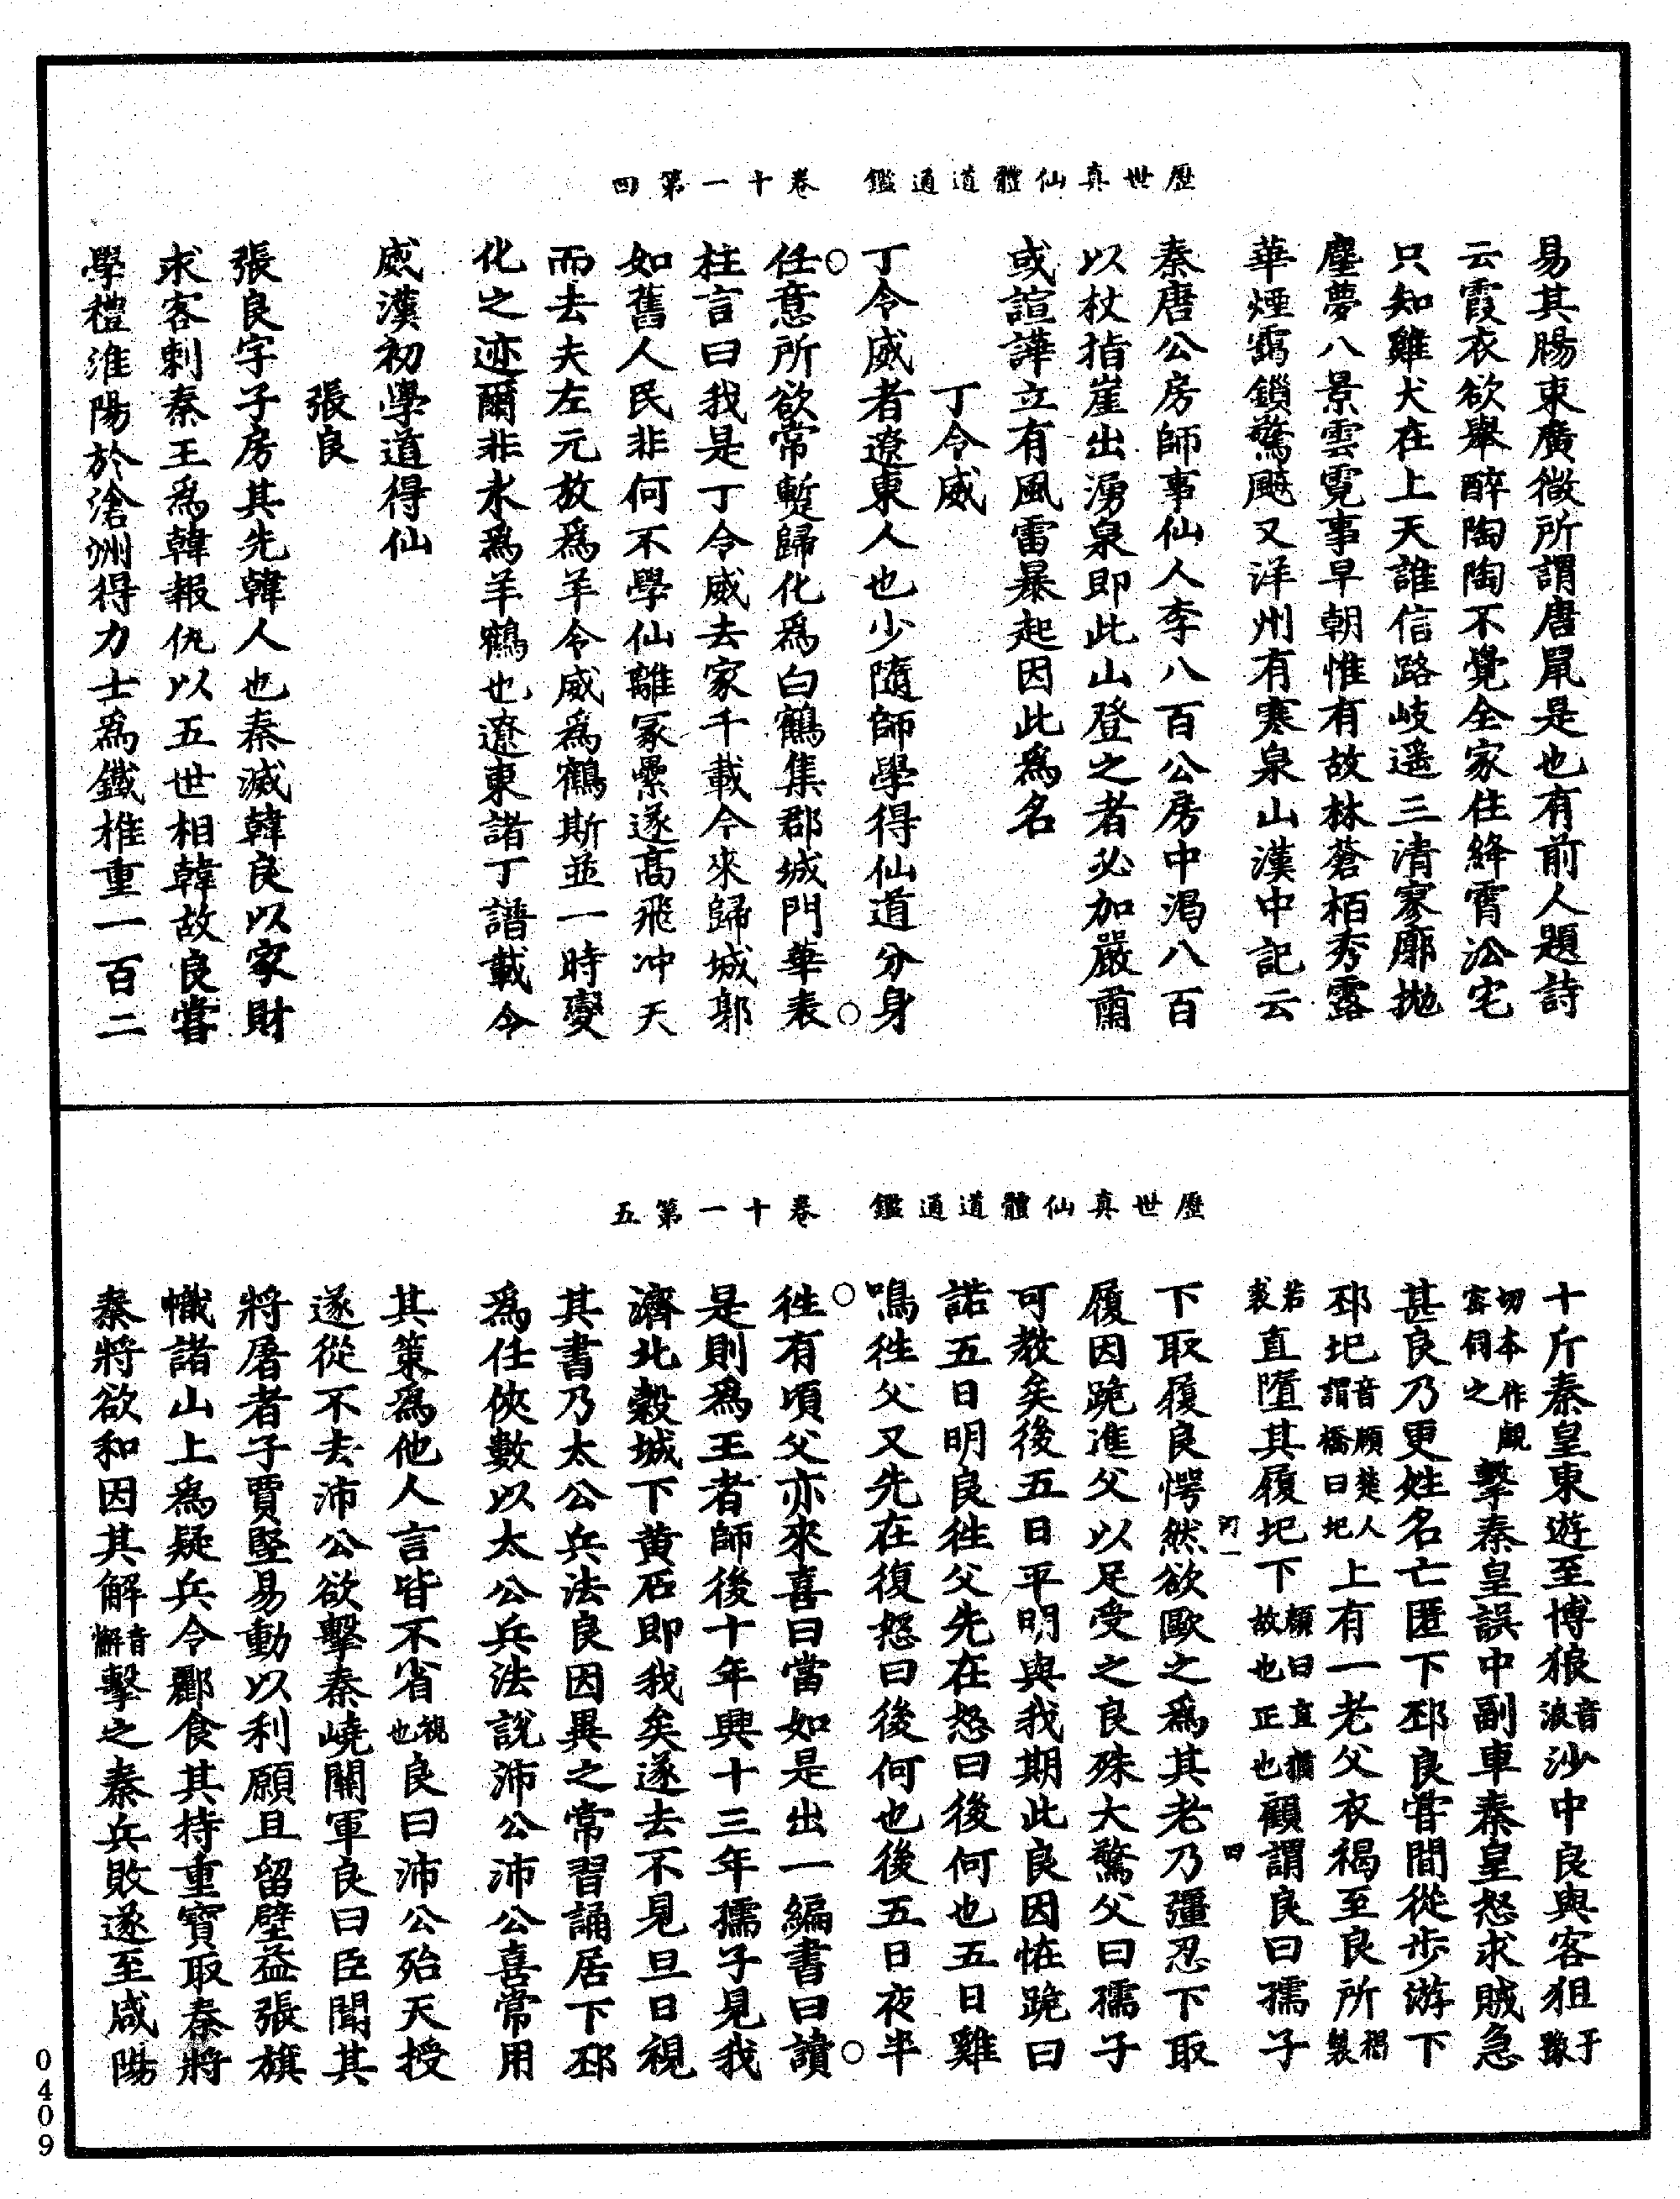 歷世真仙體道通鑑　卷十一第四
易其腸東廣微所謂唐鼠是也有前人題詩
云霞衣欲舉醉陶陶不覺全家住絳霄㳂宅
只知雞犬在上天誰信路岐遥三清寥廓抛
塵夢八景雲霓事早朝惟有故林蒼栢秀露
華煙靄鎖驚飇又洋州有寒泉山漢中記云
秦唐公房師事仙人李八百公房中渴八百
以杖指崖出湧泉即此山登之者必加嚴肅
或諠譁立有風雷暴起因此爲名
丁令威
丁令威者遼東人也少隨師學得仙道分身
任意所欲常蹔歸化爲白鶴集郡城門華表
柱言曰我是丁令威去家千載今來歸城郭
如舊人民非何不學仙離冢纍遂高飛冲天
而去夫左元放爲羊令威爲鶴斯並一時變
化之迹爾非永爲羊鶴也遼東諸丁譜載令
威漢初學道得仙
張良
張良字子房其先韓人也秦滅韓良以家財
求客刺秦王爲韓報仇以五世相韓故良嘗
學禮淮陽於滄洲得力士爲鐵椎重一百二
歷世真仙體道通鑑　卷十一第五
十斤秦皇東遊至博狼音浪沙中良與客狙千豫
切本作覰密伺之擊秦皇誤中副車秦皇怒求賊急
甚良乃更姓名亡匿下邳良嘗間從步游下
邳圯音頤楚人謂橋曰圯上有一老父衣褐至良所褐製
若裘直墮其履圯下顔曰直猶故也正也顧謂良曰孺子
下取履良愕然欲歐之爲其老乃彊忍下取
履因跪進父以足受之良殊大驚父曰孺子
可教矣後五日平明與我期此良因怪跪曰
諾五日明良徃父先在怒曰後何也五日雞
鳴徃父又先在復怒曰後何也後五日夜半
徃有頃父亦來喜曰當如是出一編書曰讀
是則爲王者師後十年興十三年孺子見我
濟北穀城下黄石即我矣遂去不見旦日視
其書乃太公兵法良因異之常習誦居下邳
爲任俠數以太公兵法說沛公沛公喜常用
其策爲他人言皆不省視也良曰沛公殆天授
遂從不去沛公欲擊秦嶢關軍良曰臣聞其
將屠者子賈竪易動以利願且留壁益張旗
幟諸山上爲疑兵令酈食其持重寶㗖秦將
秦將欲和因其解音懈擊之秦兵敗遂至咸陽
河一
四
0409